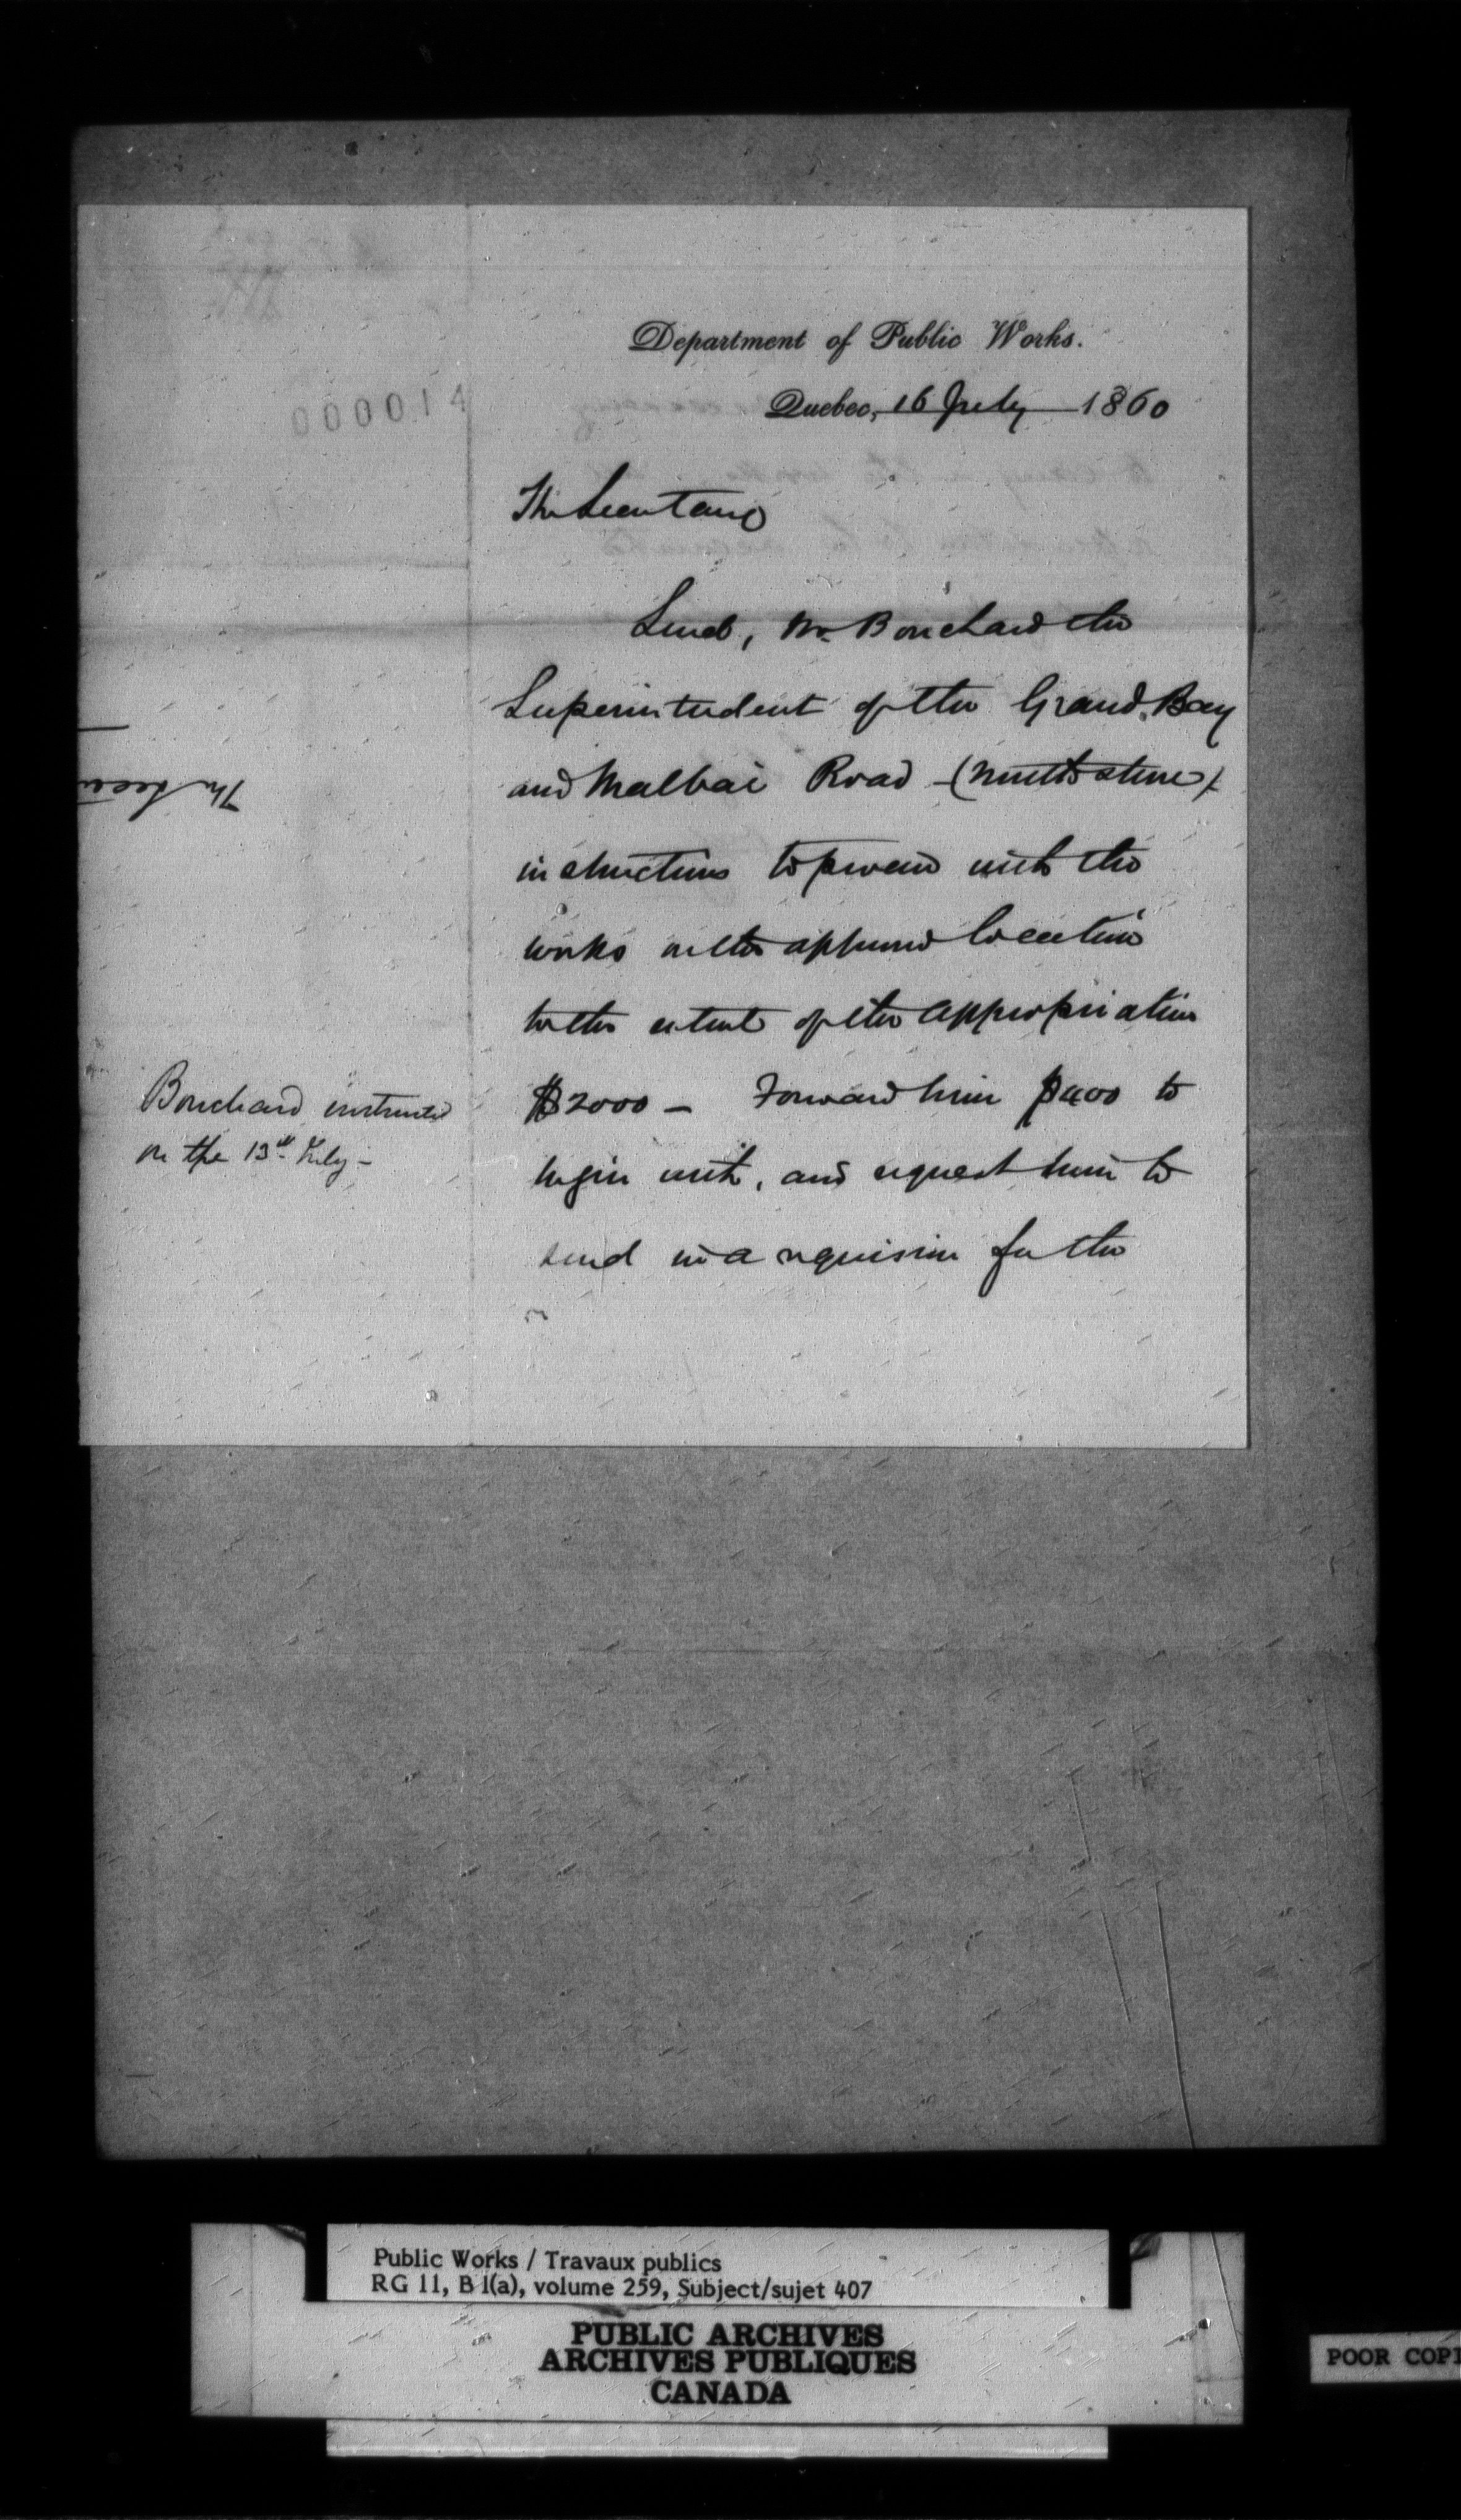 Department of Public Works.
000014
Quebec, 16 July 1860
The Secretary
Send, Mr Bouchard the
Superintendent of the Grand Bay
and Malbai Road (North Shore)
instructions to proceed with the
works on the approved location
to the extent of the appropriation
$2000 — Forward him $400 to
begin with, and request him to
send in a requisition for the
Bouchard instructed
on the 13th July —
Public Works / Travaux publics
RG 11, B 1(a), volume 259, Subject/sujet 407
PUBLIC ARCHIVES
ARCHIVES PUBLIQUES
CANADA
POOR COPY